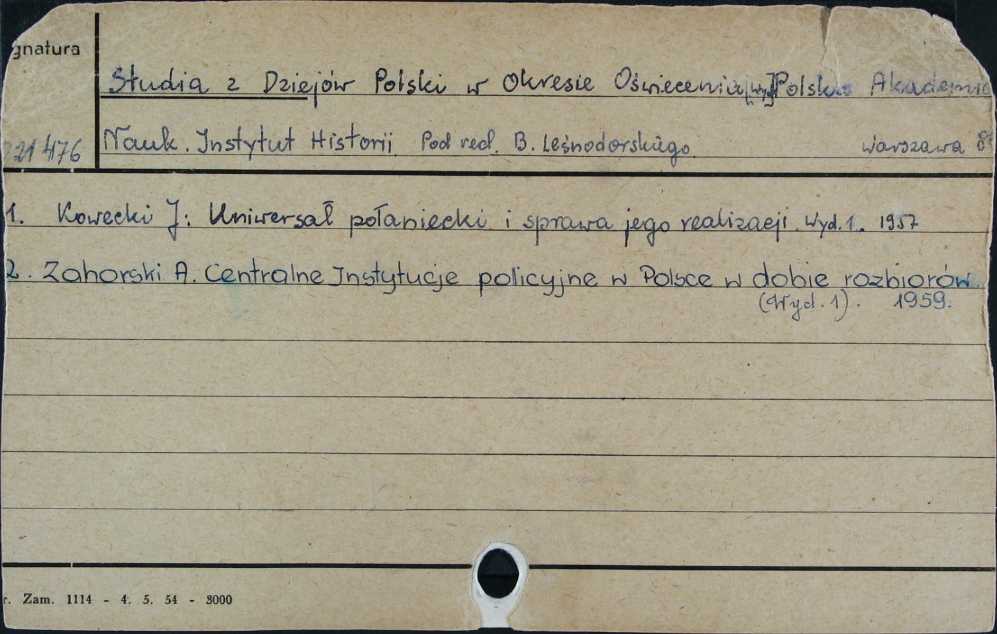 gnatura
Studia z Dziejów Polski w Okresie Oświecenia [wyd.] Polska Akademia
221 476 Nauk. Instytut Historii. Pod red. B. Leśnodorskiego. Warszawa 8°
1. Kowecki J: Uniwersał połaniecki i sprawa jego realizacji. Wyd. 1. 1957
2. Zahorski A. Centralne Instytucje policyjne w Polsce w dobie rozbiorów.
(Wyd. 1). 1959.
r. Zam. 1114 - 4. 5. 54 - 3000